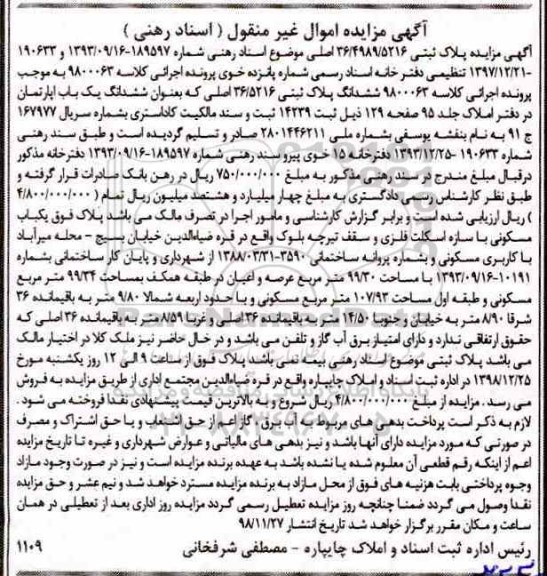 آگهی مزایده اموال غیر منقول ( اسناد رهنی )
آگهی مزایده پلاک ثبتی ۳۶/۴۹۸۹/۵۲۱۶ اصلی موضوع اسناد رهنی شماره ۱۸۹۵۹۷-۱۳۹۳/۰۹/۱۶ و ۱۹۰۶۳۳
-۱۳۹۷/۱۲/۲۱ تنظیمی دفتر خانه اسناد رسمی شماره پانزده خوی پرونده اجرائی کلاسه ۹۸۰۰۰۶۳ به موجب
پرونده اجرائی کلاسه ۹۸۰۰۰۶۳ ششدانگ پلاک ثبتی ۳۶/۵۲۱۶ اصلی که بعنوان ششدانگ یک باب اپارتمان
در دفتر املاک جلد ۹۵ صفحه ۱۲۹ ذیل ثبت ۱۴۲۳۹ ثبت و سند مالکیت کاداستری بشماره سریال ۱۶۷۹۷۷
ج ۹۱ به نام بنفشه یوسفی بشماره ملی ۲۸۰۱۴۴۶۲۱۱ صادر و تسلیم گردیده است و طبق سند رهنی
شماره ۱۹۰۶۳۳ -۱۳۹۳/۱۲/۲۵ دفترخانه ۱۵ خوی پیرو سند رهنی شماره ۱۸۹۵۹۷-۱۳۹۳/۰۹/۱۶ دفترخانه مذکور
درقبال مبلغ مندرج در سند رهنی مذکور به مبلغ ۷۵۰/۰۰۰/۰۰۰ ریال در رهن بانک صادرات قرار گرفته و
طبق نظر کارشناس رسمی دادگستری به مبلغ چهار میلیارد و هشتصد میلیون ریال تمام ( ۴/۸۰۰/۰۰۰/۰۰۰
) ریال ارزیابی شده است و برابر گزارش کارشناسی و مامور اجرا در تصرف مالک می باشد پلاک فوق یکباب
مسکونی با سازه اسکلت فلزی و سقف تیرچه بلوک واقع در قره ضیاءالدین خیابان بسیج - محله میرآباد
با کاربری مسکونی و بشماره پروانه ساختمانی ۳۵۹۰-۱۳۸۸/۰۳/۳۱ از شهرداری و پایان کار ساختمانی بشماره
۱۰۱۹۱-۱۳۹۳/۰۹/۱۶ با مساحت ۹۹/۳۰ متر مربع عرصه و اعیان در طبقه همکف بمساحت ۹۹/۳۴ متر مربع
مسکونی و طبقه اول مساحت ۱۰۷/۹۳ متر مربع مسکونی و با حدود اربعه شمالا ۹/۸۰ متر به باقیمانده ۳۶
شرقا ۸/۹۰ متر به خیابان وجنوبا ۱۴/۵۰ متر به باقیمانده ۳۶ اصلی و غربا ۸/۵۹ متر به باقیمانده ۳۶ اصلی که
حقوق ارتفاقی ندارد و دارای امتیاز برق آب گاز و تلفن می باشد و در حال حاضر نیز ملک کلا در اختیار مالک
می باشد پلاک ثبتی موضوع اسناد رهنی بیمه نمی باشد پلاک فوق از ساعت ۹ الی ۱۲ روز یکشنبه مورخ
۱۳۹۸/۱۲/۲۵ در اداره ثبت اسناد و املاک چایپاره واقع در قره ضیاالدین مجتمع اداری از طریق مزایده به فروش
می رسد . مزایده از مبلغ ۴/۸۰۰/۰۰۰/۰۰۰ ریال شروع و به بالاترین قیمت پیشنهادی نقدا فروخته می شود .
لازم به ذکر است پرداخت بدهی های مربوط به آب ،برق ، گاز اعم از حق انشعاب و یا حق اشتراک و مصرف
در صورتی که مورد مزایده دارای آنها باشد و نیز بدهی های مالیاتی و عوارض شهرداری و غیره تا تاریخ مزایده
اعم از اینکه رقم قطعی آن معلوم شده یا نشده باشد به عهده برنده مزایده است و نیز در صورت وجود مازاد
وجوه پرداختی بابت هزینه های فوق از محل مازاد به برنده مزایده مسترد خواهد شد و نیم عشر و حق مزایده
نقدا وصول می گردد ضمنا چنانچه روز مزایده تعطیل رسمی گردد مزایده روز اداری بعد از تعطیلی در همان
ساعت و مکان مقرر برگزار خواهد شد تاریخ انتشار ۹۸/۱۱/۲۷
رئیس اداره ثبت اسناد و املاک چایپاره - مصطفی شرفخانی ۱۱۰۹